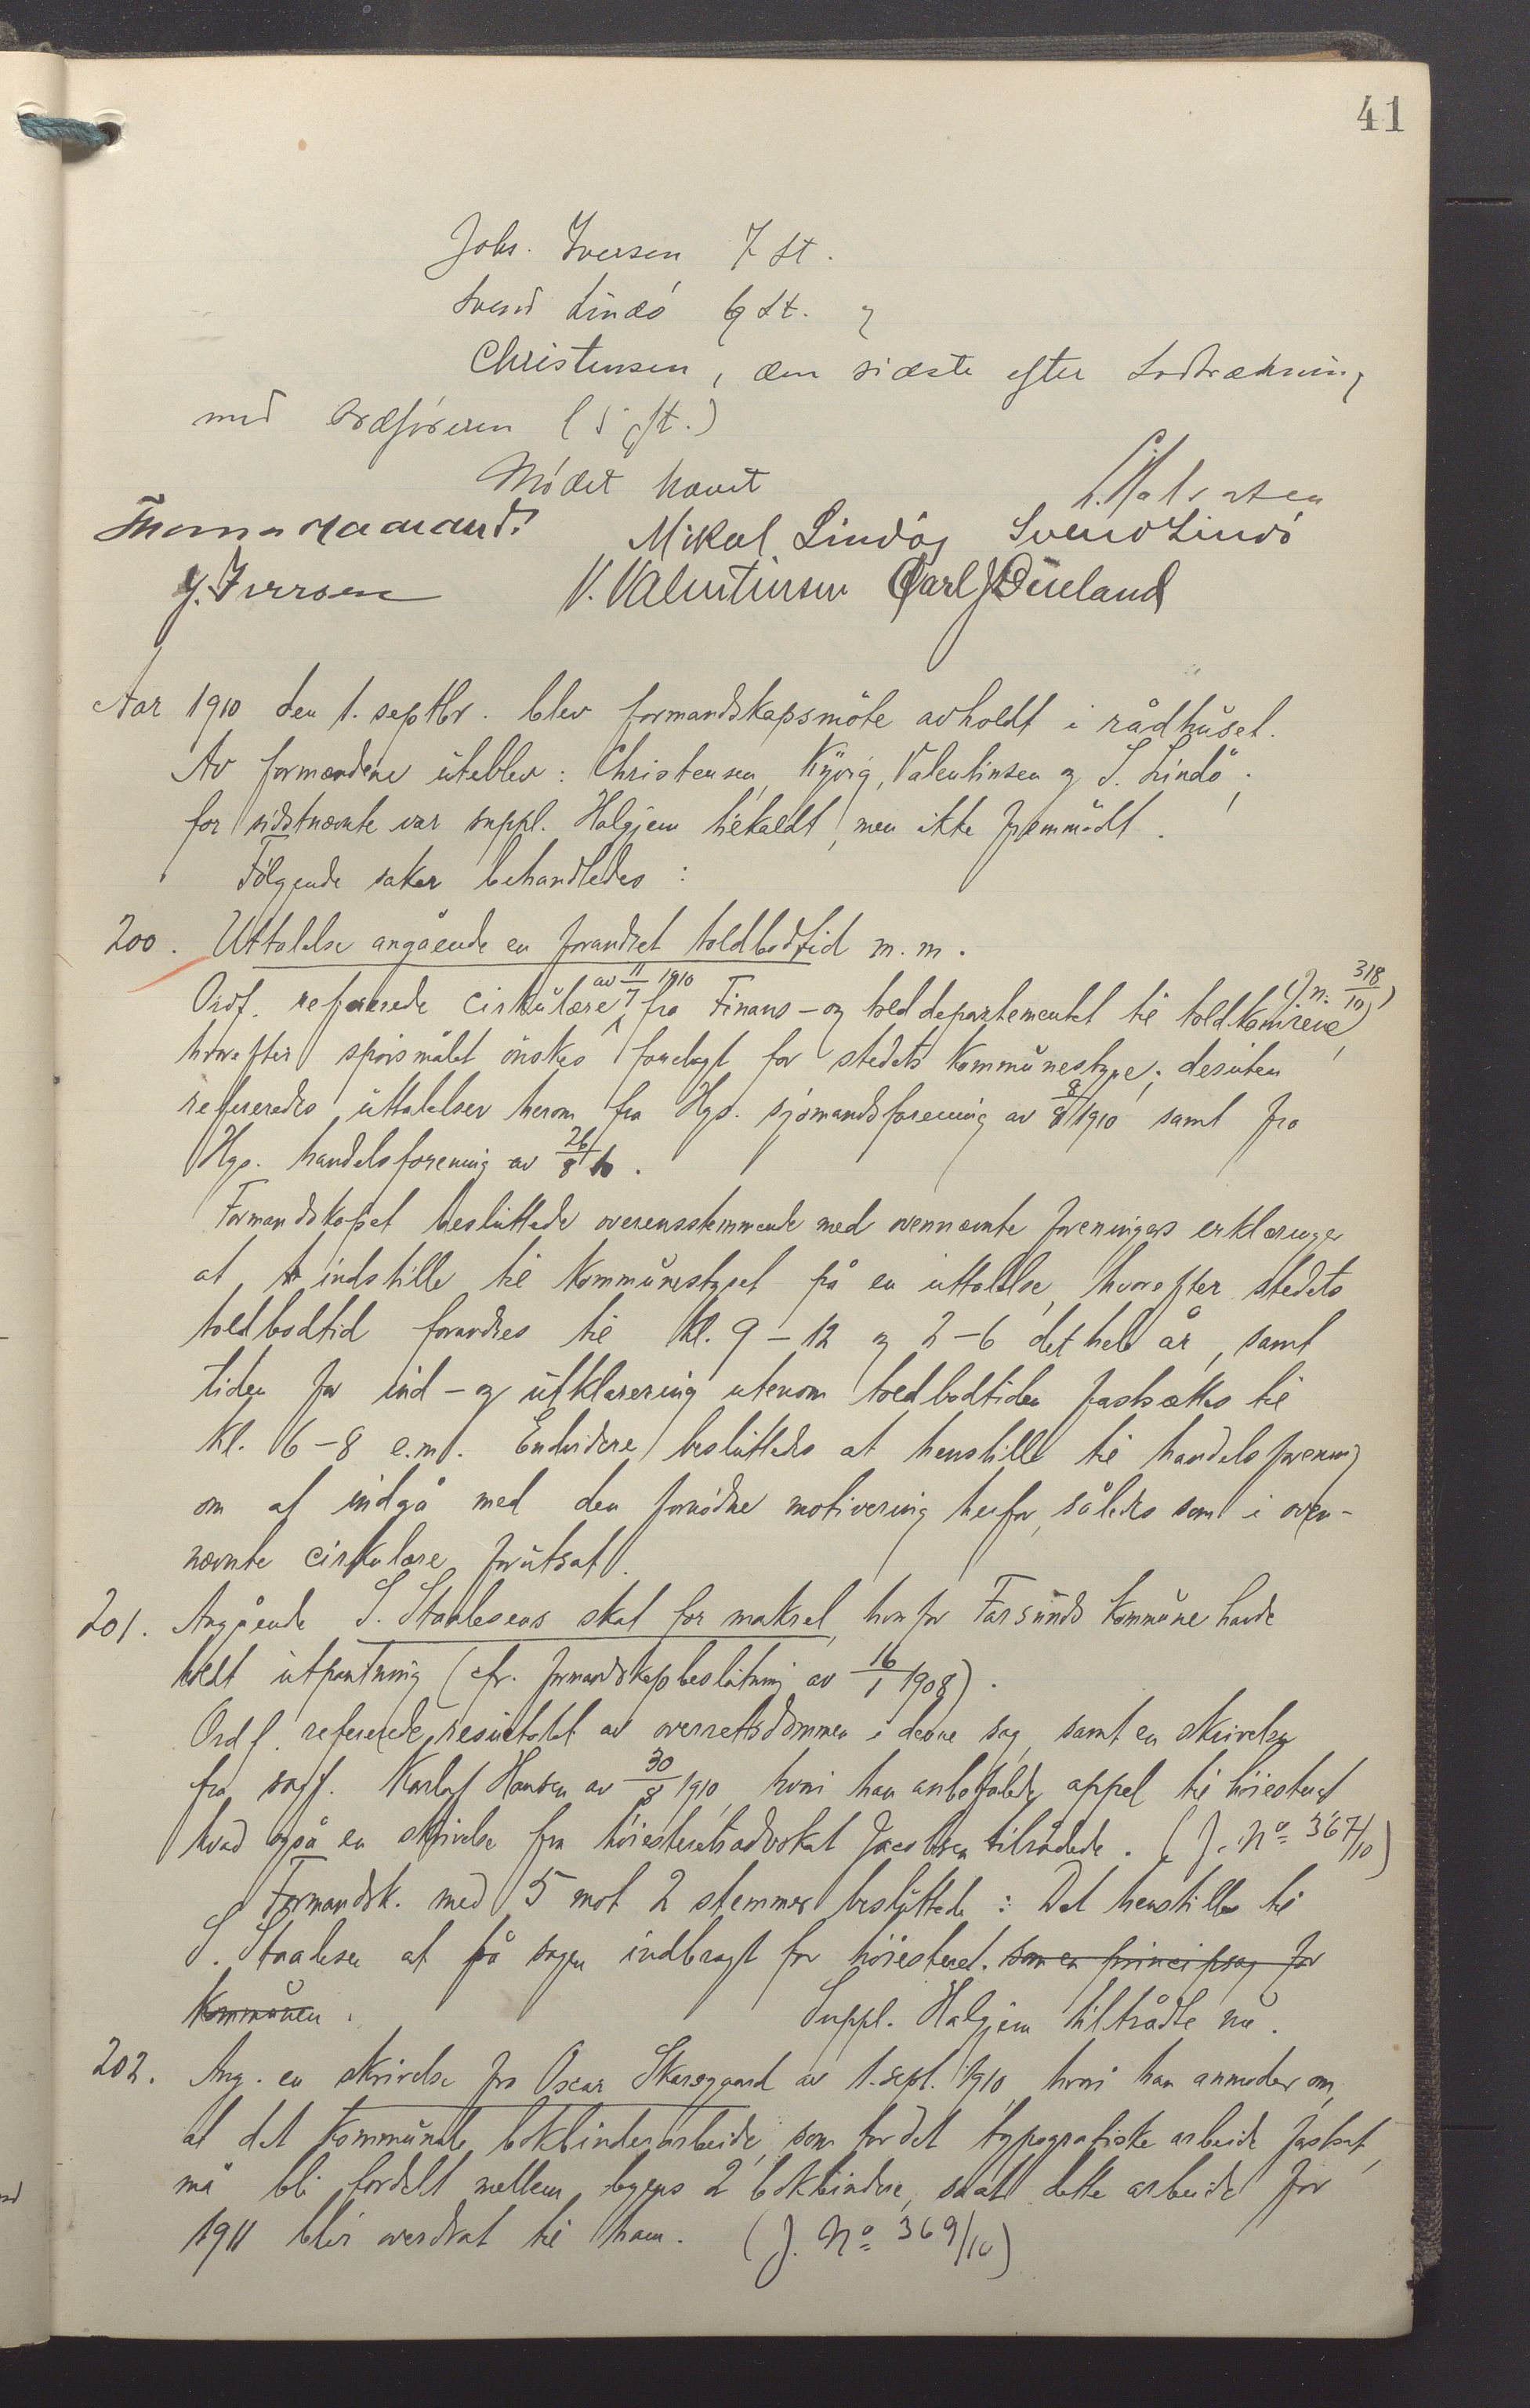 41
Johs. Iversen 7 st.
Svend Lindø 6 st. og
Christensen, den sidste efter Lodtrækning
med Ordføreren (5 st.)
Mødet hævet
Mikal Lindøe Svend Lindö
J. Iversen V. Valentinsen Carl J Dueland
Aar 1910 den 1. septbr. blev formandskapsmöte avholdt i rådhuset.
Av formændene uteblev: Christensen, Kyvig, Valentinsen og S. Lindö;
for sidstnævnte var suppl. Halgjem tilkaldt, men ikke fremmödt.
Følgende saker behandledes:
200. Uttalelse angående en forandret toldbodtid m.m.
Ordf. refererede cirkulære av 11/7 1910 fra Finans- og tolddepartementet til toldkamrene, (J.n. 318/10)
hvorefter spörsmålet önskes forelagt for stedets kommunestyre; desuten
refereredes uttalelser herom fra Hgs. sjömandsforening av 8/8 1910 samt fra
Hgs. handelsforening av 26/8 10.
Formandskapet besluttede overensstemmende med ovennævnte foreningers erklæringer
at indstille til kommunestyret på en uttalelse, hvorefter stedets
toldbodtid forandres til kl. 9-12 og 2-6 det hele år, samt
tiden for ind- og utklarering utenom toldbodtiden fastsættes til
kl. 6-8 e.m. Endvidere besluttedes at henstille til handelsforening
om at indgå med den fornödne motivering herfor, således som i oven-
nævnte cirkulære forutsat.
201. Angående S. Staalesens skat for makrel, hvorfor Farsunds kommune havde
holdt utpantning (cfr. formandskapsbeslutning av 16/1 1908).
Ordf. refererede resultatet av overretsdommen i denne sag, samt en skrivelse
fra sagf. Karluf Hansen av 30/8 1910, hvori han anbefalede appel til höiesteret
hvad også en skrivelse fra höiesteretsadvokat Jacobsen tilrådede. (J. No 367/10)
Formandsk. med 5 mot 2 stemmer besluttede: Det henstilles til
S. Staalesen at få sagen indbragt for höiesteret. som en principsag for
kommunen. Suppl. Halgjem tiltrådte nu.
202. Ang. en skrivelse fra Oscar Skaregaard av 1. sept. 1910, hvori han anmoder om,
at det kommunale bokbinderarbeide, som for det typografiske arbeide fastsat,
må bli fordelt mellem byens 2 bokbindere, så at dette arbeide for
1911 blir overdrat til ham. (J. No 369/10)